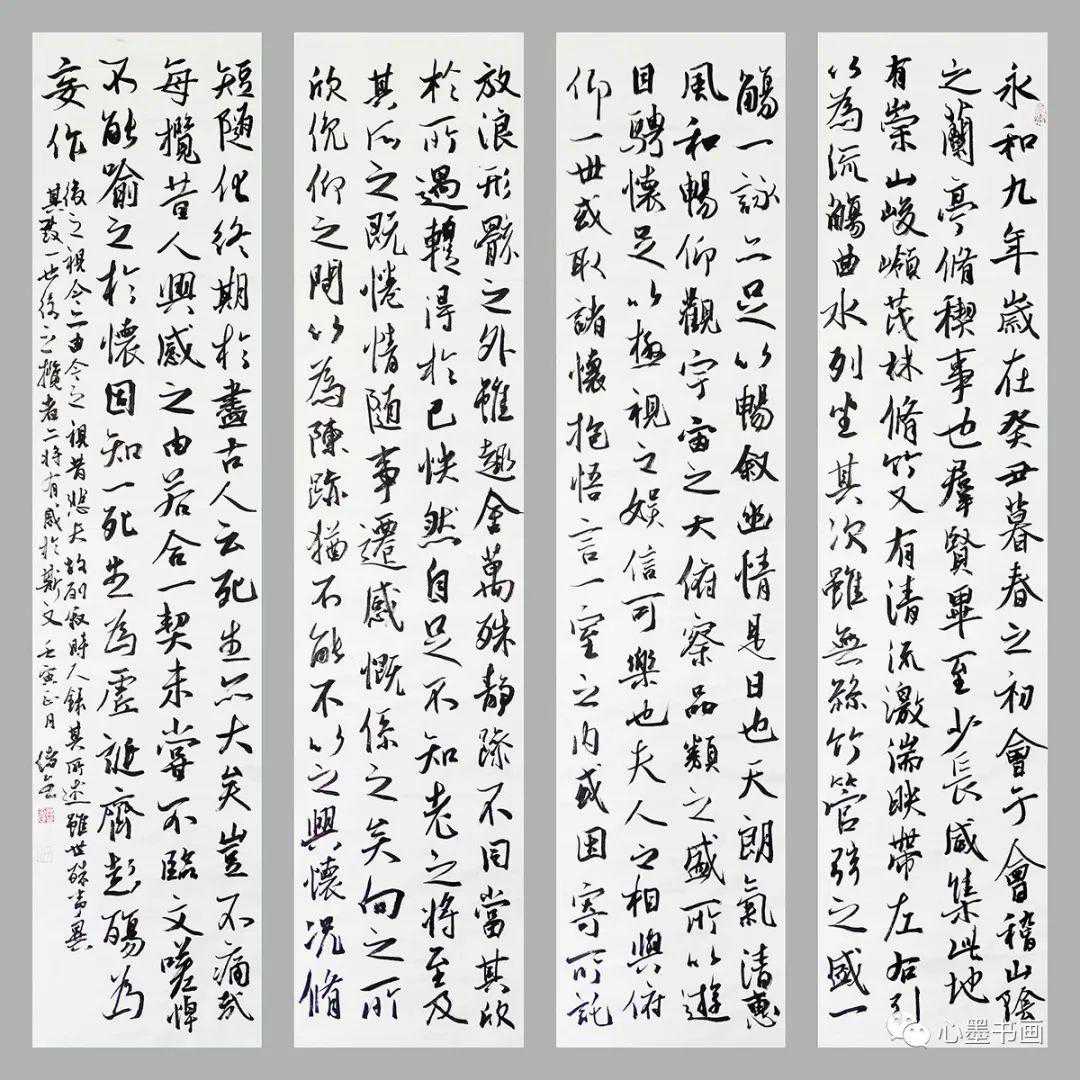 永和九年歲在癸丑暮春之初會于會稽山陰
之蘭亭脩稧事也羣賢畢至少長咸集此地
有崇山峻嶺茂林脩竹又有清流激湍映帶左右引
以為流觴曲水列坐其次雖無絲竹管弦之盛一
觴一詠亦足以暢敘幽情是日也天朗氣清惠
風和暢仰觀宇宙之大俯察品類之盛所以遊
目騁懷足以極視之娛信可樂也夫人之相與俯
仰一世或取諸懷抱悟言一室之內或因寄所託
放浪形骸之外雖趣舍萬殊靜躁不同當其欣
於所遇蹔得於己怏然自足不知老之將至及
其所之既惓情隨事遷感慨係之矣向之所
欣俛仰之間以為陳跡猶不能不以之興懷況脩
短隨化終期於盡古人云死生亦大矣豈不痛哉
每攬昔人興感之由若合一契未嘗不臨文嗟悼
不能喻之於懷固知一死生為虛誕齊彭殤為
妄作
後之視今亦由今之視昔悲夫故列敘時人錄其所述雖世殊事異
其致一也後之攬者亦將有感於斯文 壬寅正月
心墨书画